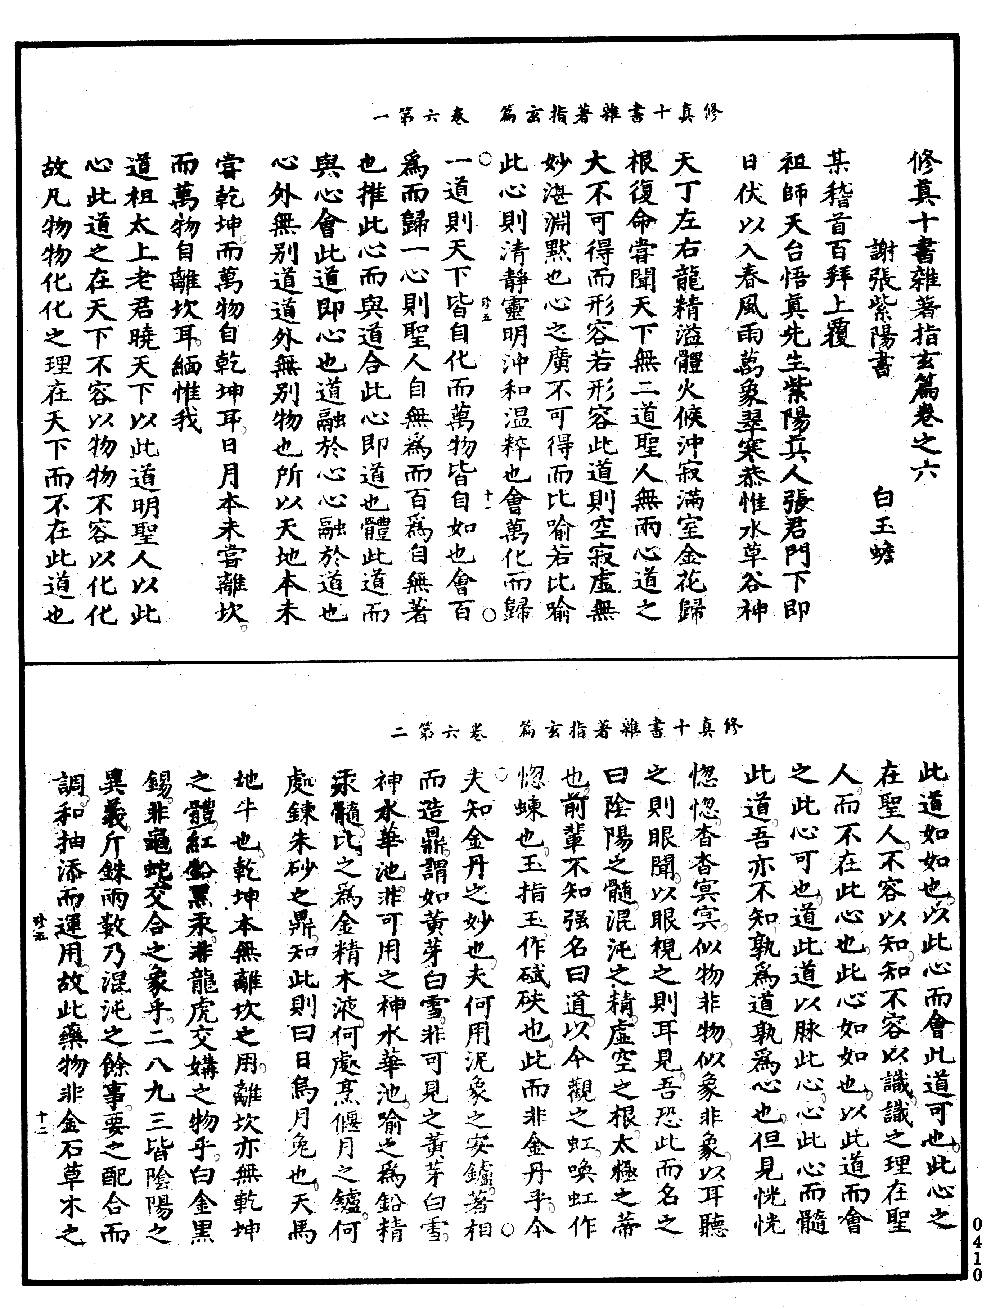 修真十書雜著指玄篇　卷六第一
修真十書雜著指玄篇卷之六
謝張紫陽書　白玉蟾
某稽首百拜上覆
祖師天台悟真先生紫陽真人張君門下即
日伏以入春風雨萬象翠寒恭惟水草谷神
天丁左右龍精溢體火候沖寂滿室金花歸
根復命嘗聞天下無二道聖人無兩心道之
大不可得而形容若形容此道則空寂虛無
妙湛淵默也心之廣不可得而比喻若比喻
此心則清靜靈明沖和温粹也會萬化而歸
珍五　十一
一道則天下皆自化而萬物皆自如也會百
爲而歸一心則聖人自無爲而百爲自無著
也推此心而與道合此心即道也體此道而
與心會此道即心也道融於心心融於道也
心外無別道道外無別物也所以天地本未
嘗乾坤而萬物自乾坤耳日月本未嘗離坎
而萬物自離坎耳緬惟我
道祖太上老君曉天下以此道明聖人以此
心此道之在天下不容以物物不容以化化
故凡物物化化之理在天下而不在此道也
修真十書雜著指玄篇　卷六第二
此道如如也以此心而會此道可也此心之
在聖人不容以知知不容以識識之理在聖
人而不在此心也此心如如也以此道而會
之此心可也道此道以脉此心心此心而髓
此道吾亦不知孰爲道孰爲心也但見恍恍
惚惚杳杳冥冥似物非物似象非象以耳聽
之則眼聞以眼視之則耳見吾恐此而名之
曰陰陽之髓混沌之精虛空之根太極之蒂
也前輩不知强名曰道以今觀之虹喚虹作
惚蝀也玉指玉作碔砆也此而非金丹乎今
夫知金丹之妙也夫何用泥象之安鑪著相
而造鼎謂如黃芽白雪非可見之黃芽白雪
神水華池非可用之神水華池喻之爲鉛精
汞髓比之爲金精木液何處烹偃月之鑪何
處鍊朱砂之鼎知此則曰日烏月兔也天馬
地牛也乾坤本無離坎之用離坎亦無乾坤
之體紅鉛黑汞非龍虎交媾之物乎白金黑
錫非龜蛇交合之象乎二八九三皆陰陽之
異義斤銖兩數乃混沌之餘事要之配合而
調和抽添而運用故此藥物非金石草木之
珍五　十二
0410